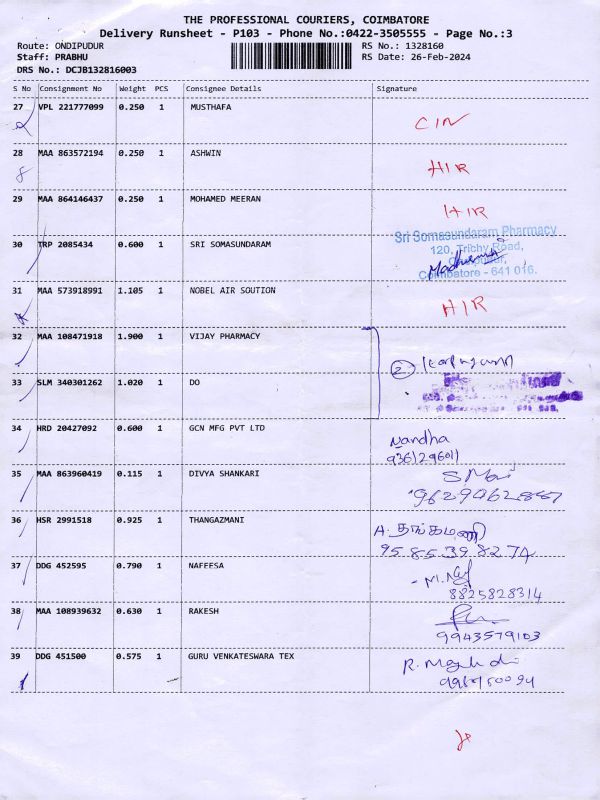 THE PROFESSIONAL COURIERS, COIMBATORE
Delivery Runsheet - P103 - Phone No.:0422-3505555 - Page No.:3
Route: ONDIPUDUR RS No.: 1328160
Staff: PRABHU RS Date: 26-Feb-2024
DRS No.: DCJB132816003
S No Consignment No Weight PCS Consignee Details Signature
27 VPL 221777099 0.250 1 MUSTHAFA
CIN
28 MAA 863572194 0.250 1 ASHWIN
HIR
29 MAA 864146437 0.250 1 MOHAMED MEERAN
HIR
30 TRP 2085434 0.600 1 SRI SOMASUNDARAM
Sri Somasundaram Pharmacy
120, Trichy Road,
Coimbatore - 641 016.
31 MAA 573918991 1.105 1 NOBEL AIR SOUTION
HIR
32 MAA 108471918 1.900 1 VIJAY PHARMACY
2
33 SLM 340301262 1.020 1 DO
34 HRD 20427092 0.600 1 GCN MFG PVT LTD
Nandha
9361296011
35 MAA 863960419 0.115 1 DIVYA SHANKARI
36 HSR 2991518 0.925 1 THANGAZMANI
A. தங்கமணி
95 85 39 82 74
37 DDG 452595 0.790 1 NAFEESA
8825828314
38 MAA 108939632 0.630 1 RAKESH
9943579103
39 DDG 451500 0.575 1 GURU VENKATESWARA TEX